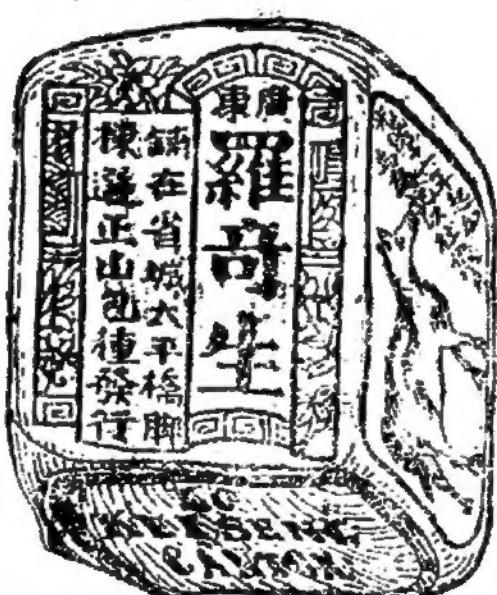 廣東
羅竒生
舖在省城太平橋脚
揀選正山包種發行
LO
KEE SENG
CANTON